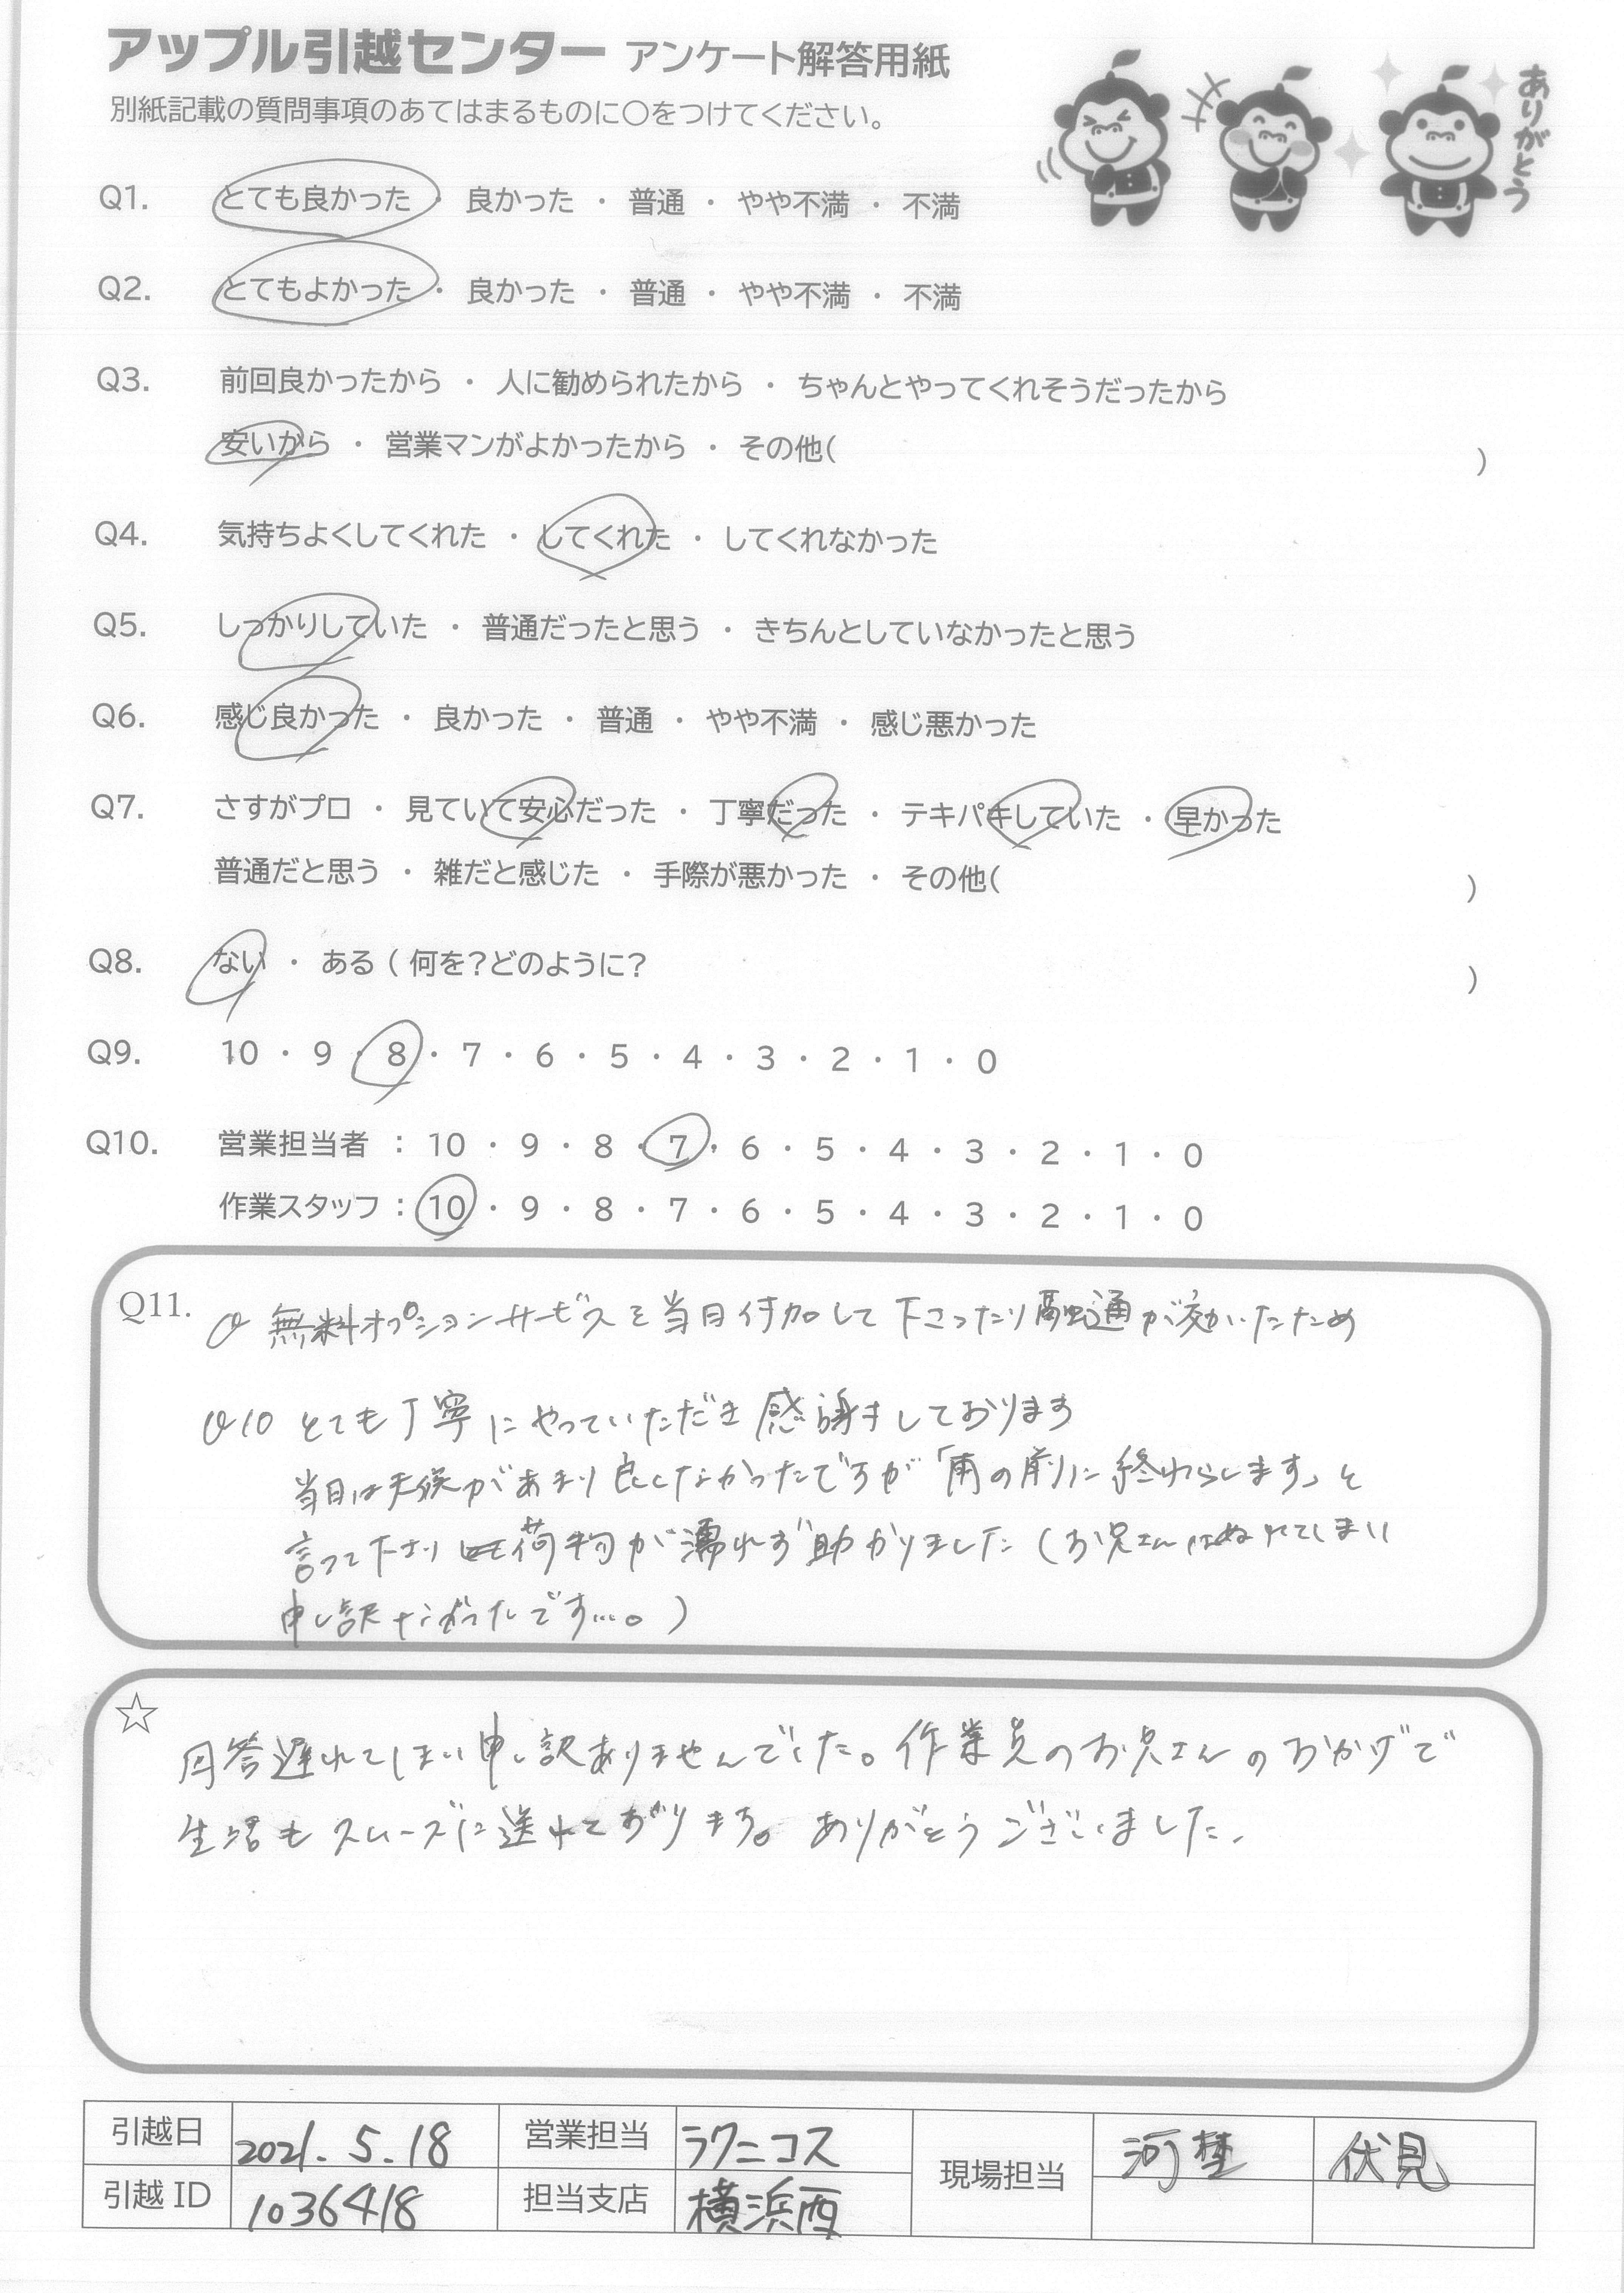 アップル引越センター アンケート解答用紙
別紙記載の質問事項のあてはまるものに〇をつけてください。
ありがとう
Q1. とても良かった ・ 良かった ・ 普通 ・ やや不満 ・ 不満
Q2. とてもよかった ・ 良かった ・ 普通 ・ やや不満 ・ 不満
Q3. 前回良かったから ・ 人に勧められたから ・ ちゃんとやってくれそうだったから
安いから ・ 営業マンがよかったから ・ その他( )
Q4. 気持ちよくしてくれた ・ してくれた ・ してくれなかった
Q5. しっかりしていた ・ 普通だったと思う ・ きちんとしていなかったと思う
Q6. 感じ良かった ・ 良かった ・ 普通 ・ やや不満 ・ 感じ悪かった
Q7. さすがプロ ・ 見ていて安心だった ・ 丁寧だった ・ テキパキしていた ・ 早かった
普通だと思う ・ 雑だと感じた ・ 手際が悪かった ・ その他( )
Q8. ない ・ ある ( 何を?どのように? )
Q9. 10 ・ 9 ・ 8 ・ 7 ・ 6 ・ 5 ・ 4 ・ 3 ・ 2 ・ 1 ・ 0
Q10. 営業担当者 : 10 ・ 9 ・ 8 ・ 7 ・ 6 ・ 5 ・ 4 ・ 3 ・ 2 ・ 1 ・ 0
作業スタッフ : 10 ・ 9 ・ 8 ・ 7 ・ 6 ・ 5 ・ 4 ・ 3 ・ 2 ・ 1 ・ 0
Q11. 無料オプションサービスを当日付加して下さったり融通が効いたため
Q10 とても丁寧にやっていただき感謝しております
当日は天候があまり良くなかったですが「雨の前に終わらします」と
言って下さり 荷物が濡れず助かりました(お兄さんはぬれてしまい
申し訳なかったです…。)
☆
回答遅れてしまい申し訳ありませんでした。作業員のお兄さんのおかげで
生活もスムーズに送れております。ありがとうございました。
引越日 2021.5.18 営業担当 ラクニコス 現場担当 河埜 伏見
引越ID 1036418 担当支店 横浜西